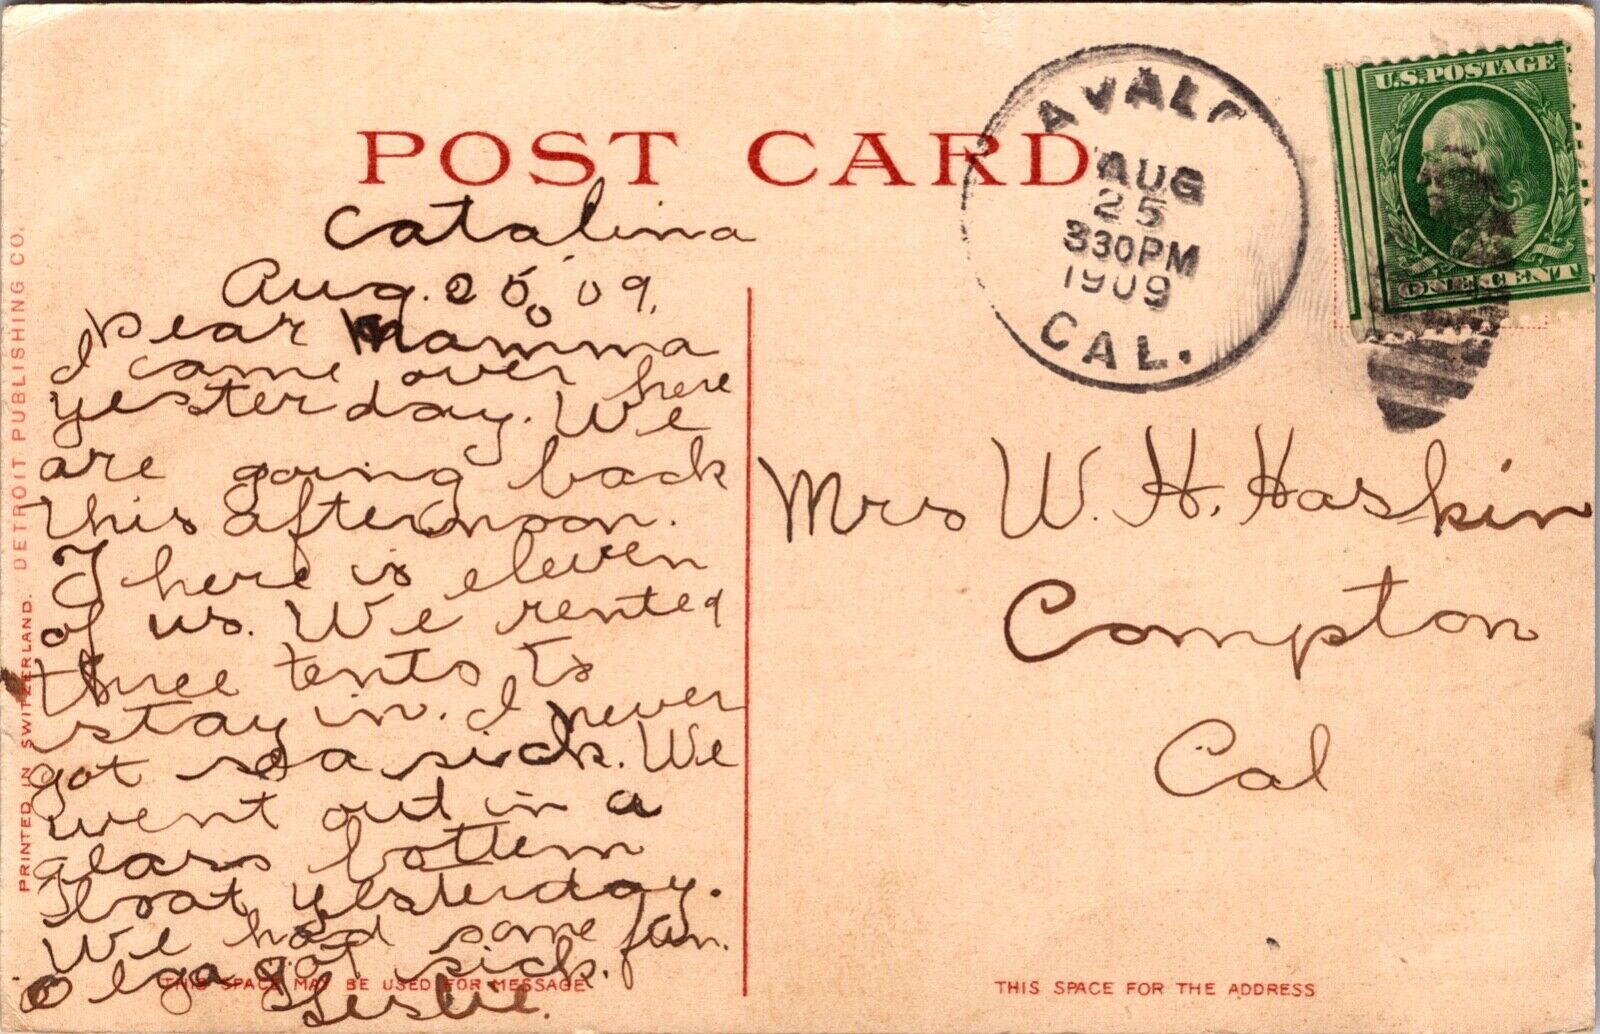 POST CARD
AVALO
AUG
25
330PM
1909
CAL.
U.S.POSTAGE
ONE CENT
Catalina
Aug. 25, 09.
Dear Mamma
I came over here
yesterday. We
are going back
this afternoon.
There is eleven
of us. We rented
three tents to
stay in. I never
got sea sick. We
went out in a
glass bottem
boat yesterday.
We had some fun.
Olga got sick.
Leslie.
Mrs W. H. Haskin
Compton
Cal
THIS SPACE MAY BE USED FOR MESSAGE
THIS SPACE FOR THE ADDRESS
PRINTED IN SWITZERLAND. DETROIT PUBLISHING CO.